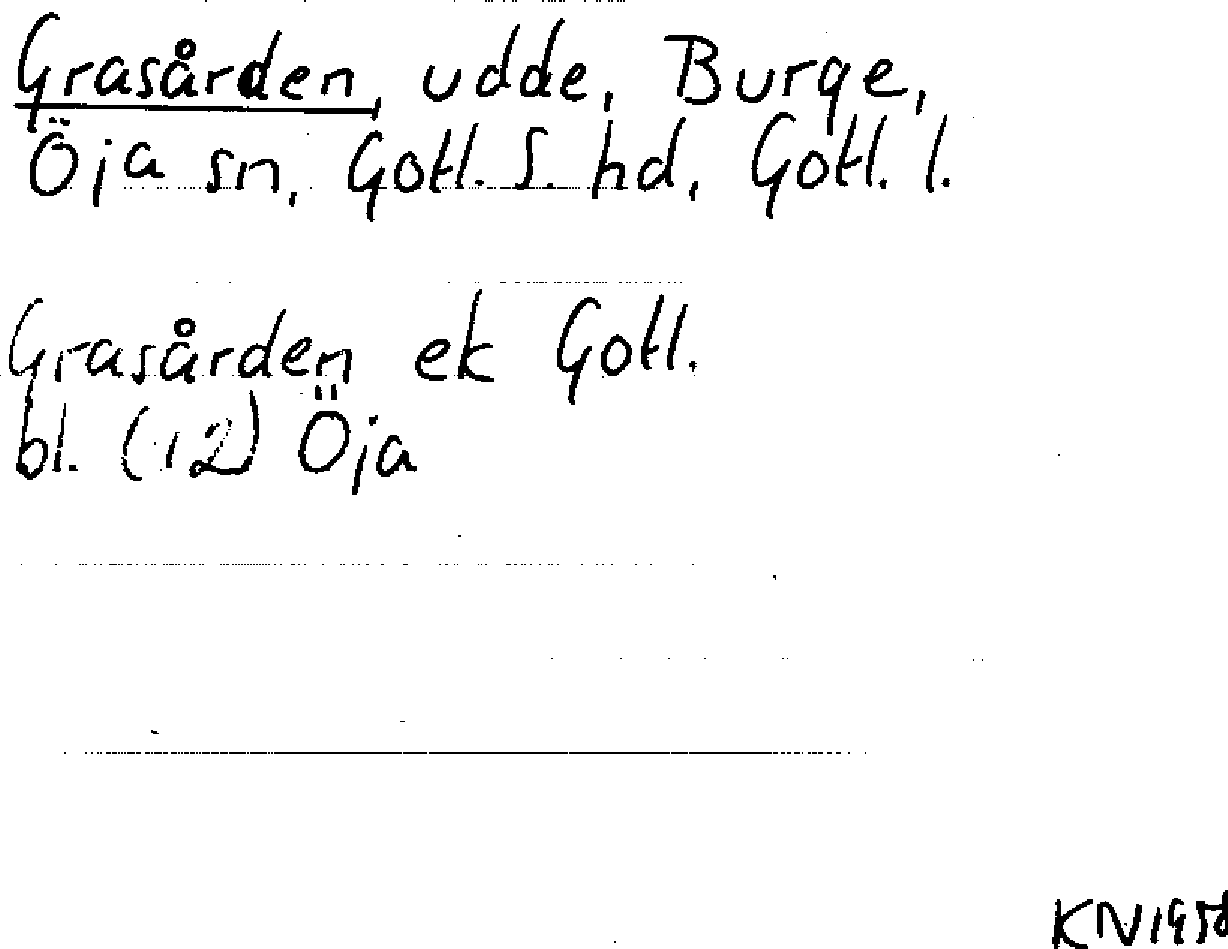 Grasården, udde, Burge,
Öja sn, Gotl. S. hd, Gotl. l.
Grasården ek Gotl.
bl. (12) Öja
KN